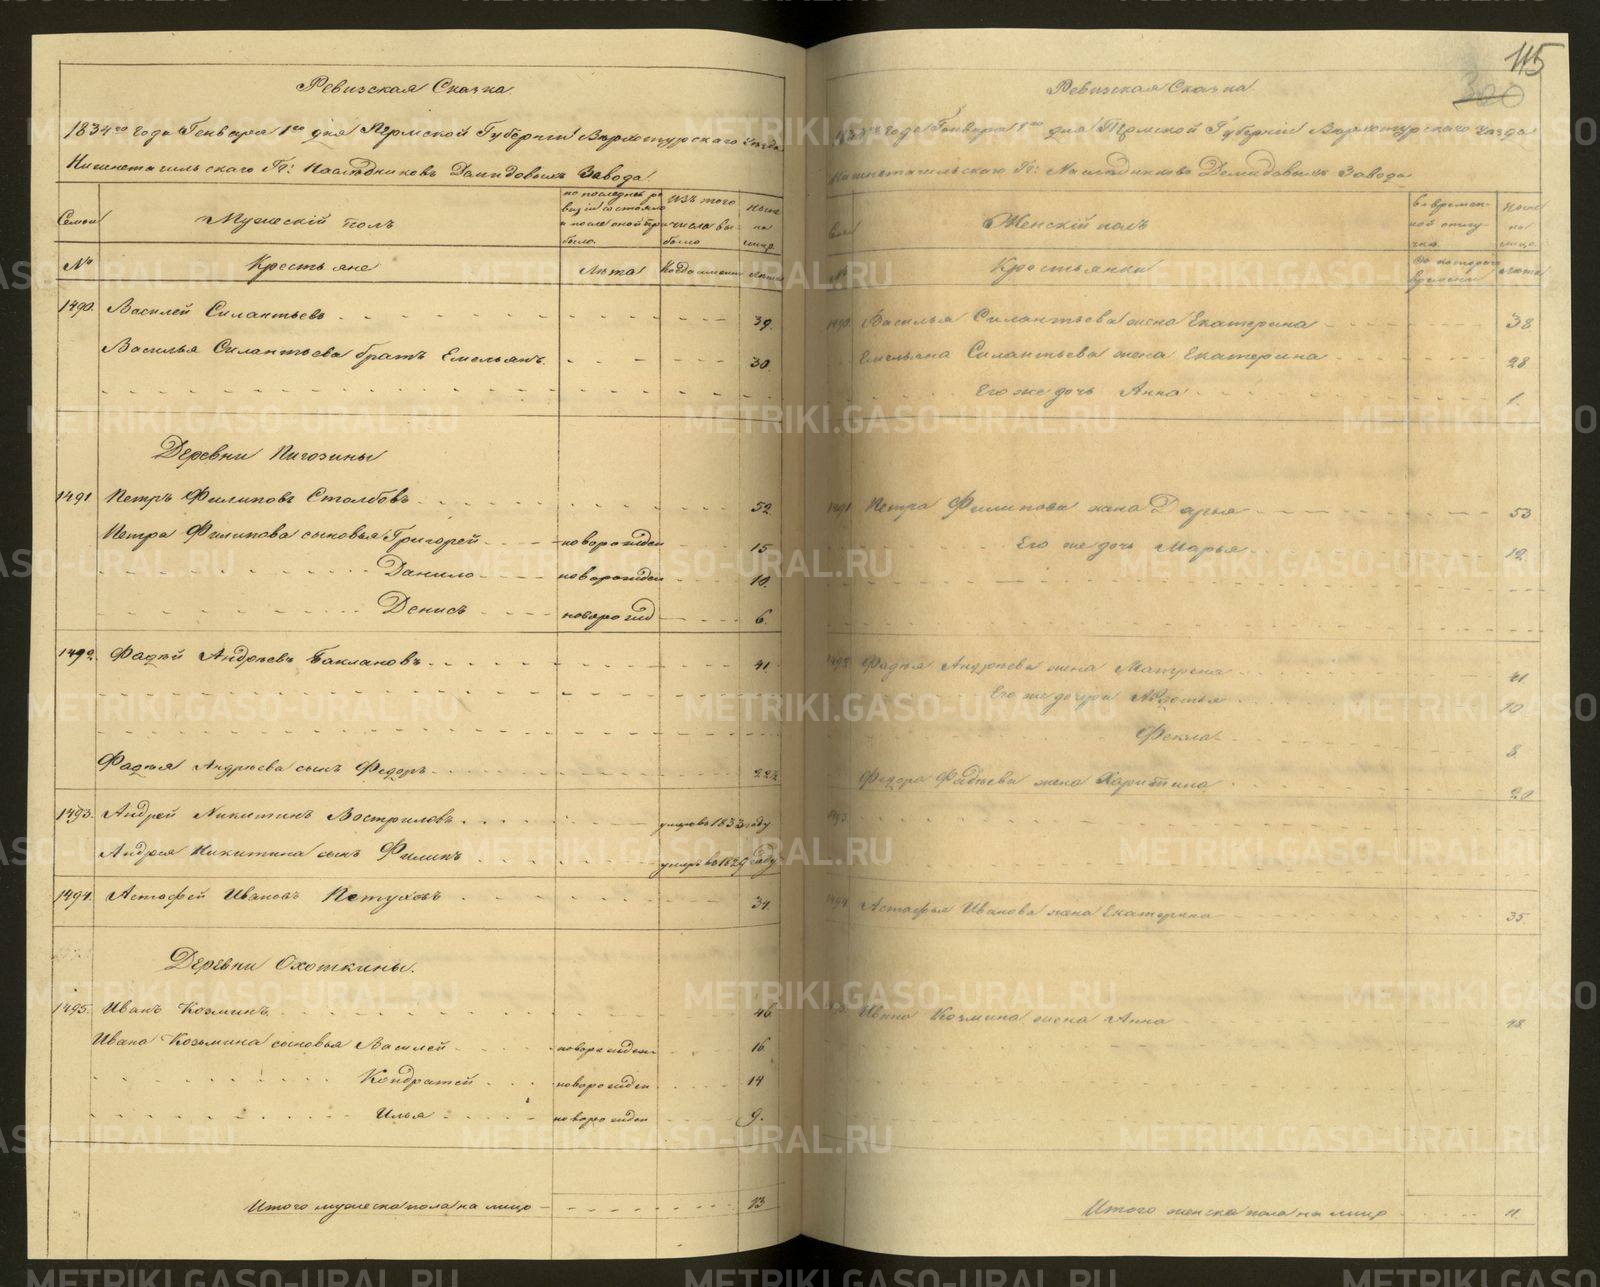 Ревизская Сказка
1834го года Генваря 1го дня Пермской Губернiи Верхотурского уезда
Нижнетагильскаго Гг: Наследниковъ Демидовыхъ Завода
Семьи
Мужескiй полъ
по последней ре
визiи состояло
и после оной при
было.
Изъ того
числа вы-
было
Ныне
на
лицо
№
Крестьяне
Лѣта
Когда именно
Лета
1490. Василей Силантьевъ 39.
Василья Силантьева братъ Емельянъ. 30.
Деревни Пигозины
1491 Петръ Филиповъ Столбовъ 52.
Петра Филипова сыновья Григорей новорожден 15
Данило новорожден 10.
Денисъ новорожд 6.
1492. Фадѣй Андрѣевъ Баклановъ 41.
Фадѣя Андрѣева сынъ Федоръ 22½
1493. Андрей Никитинъ Востриловъ умеръ въ 1833 году
Андрея Никитина сынъ Филипъ умеръ въ 1829 году
1494. Астафей Ивановъ Петуховъ 34.
Деревни Охоткины.
1495. Иванъ Козминъ 46.
Ивана Козьмина сыновья Василей новорожден 16.
Кондратей новорожден 14
Илья новорожден 9.
Итого мужеска пола на лицо 13
115
300
Ревизская Сказка
1834го года Генваря 1го дня Пермской Губернiи Верхотурского уезда
Нижнетагильскаго Гг: Наследниковъ Демидовыхъ Завода
Женскiй полъ
во времен-
ной отлу-
чке
Ныне
на
лицо
№
Крестьянки
Съ котораго
времени
Лета
1490 Василья Силантьева жена Екатерина 38
Емельяна Силантьева жена Екатерина 28
Его же дочь Анна 1.
1491 Петра Филипова жена Дарья 53
Его же дочь Марья 12.
1492 Фадѣя Андрѣева жена Матрена 41.
Его же дочери Авдотья 10
Фекла 8.
Федора Фадѣева жена Харитина 20
1493
1494 Астафья Иванова жена Екатерина 35.
95 Ивана Козмина жена Анна 48.
Итого женска пола на лицо 11.
METRIKI.GASO-URAL.RU